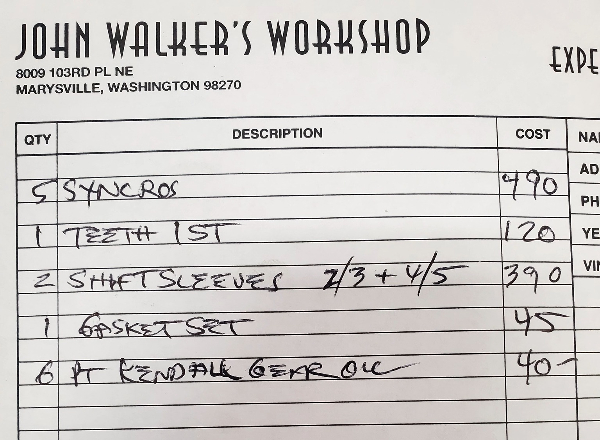 JOHN WALKER'S WORKSHOP
8009 103RD PL NE
MARYSVILLE, WASHINGTON 98270
EXPE
QTY DESCRIPTION COST NA
AD
5 SYNCROS 490
PH
1 TEETH 1ST 120
YE
2 SHIFT SLEEVES 2/3 + 4/5 390
VIN
1 GASKET SET 45
6 PT KENDALL GEAR OIL 40-